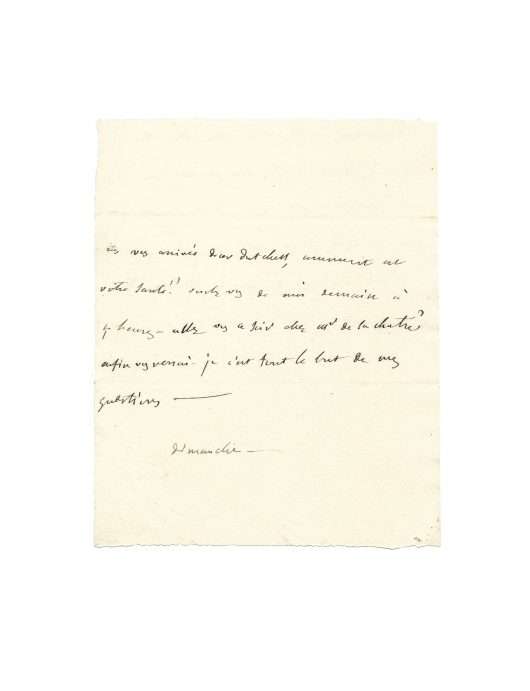 êtes vs arrivés dear dutchess, comment est
votre santé!! voulez vs de moi demain à
heures – allez vs ce soir chez Mr de la chatre?
enfin vs verrai-je c'est tout le but de mes
questions —
dimanche —